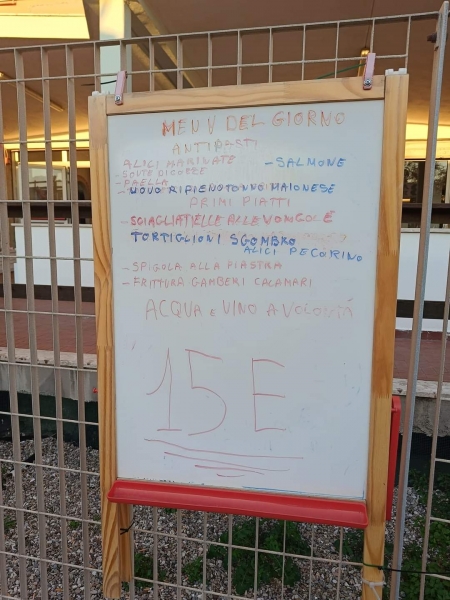 MENU DEL GIORNO
ANTIPASTI
ALICI MARINATE - SALMONE
- SOUTE DI COZZE
- PAELLA
- UOVO RIPIENO TONNO MAIONESE
PRIMI PIATTI
- SCIAGLIATIELLE ALLE VONGOLE
TORTIGLIONI SGOMBRO
ALICI PECORINO
- SPIGOLA ALLA PIASTRA
- FRITTURA GAMBERI CALAMARI
ACQUA E VINO A VOLONTÁ
15 E